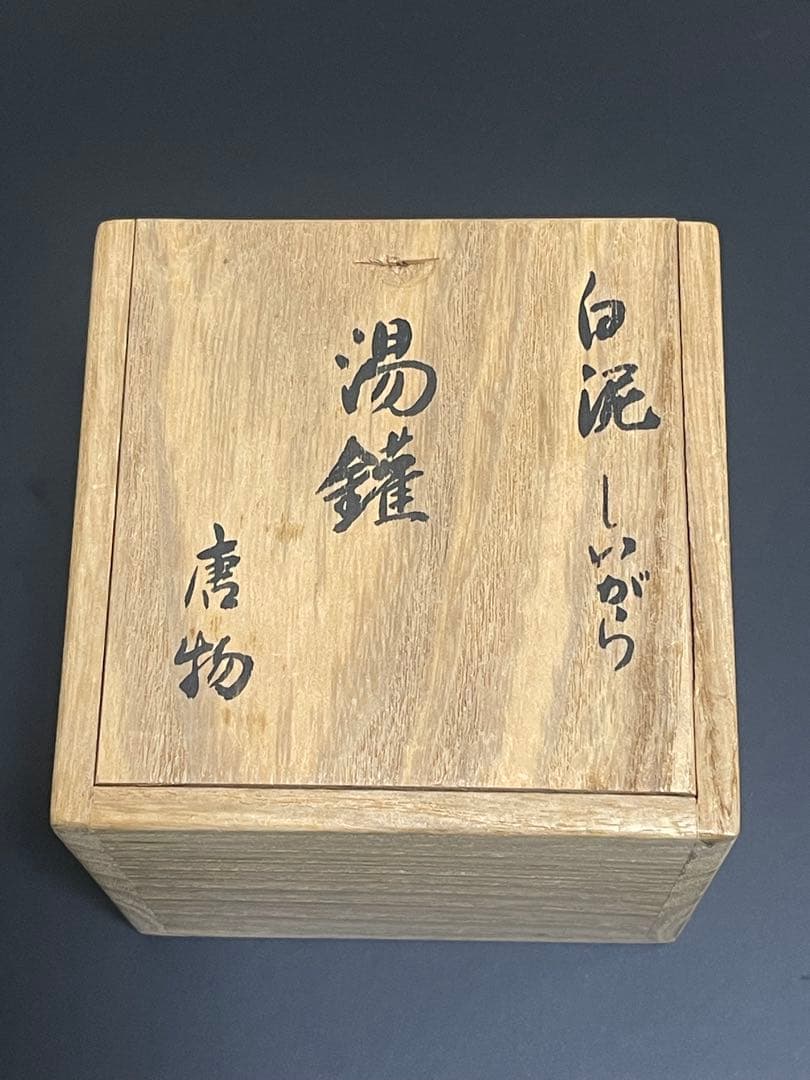 白泥しいがら
湯鑵
唐物